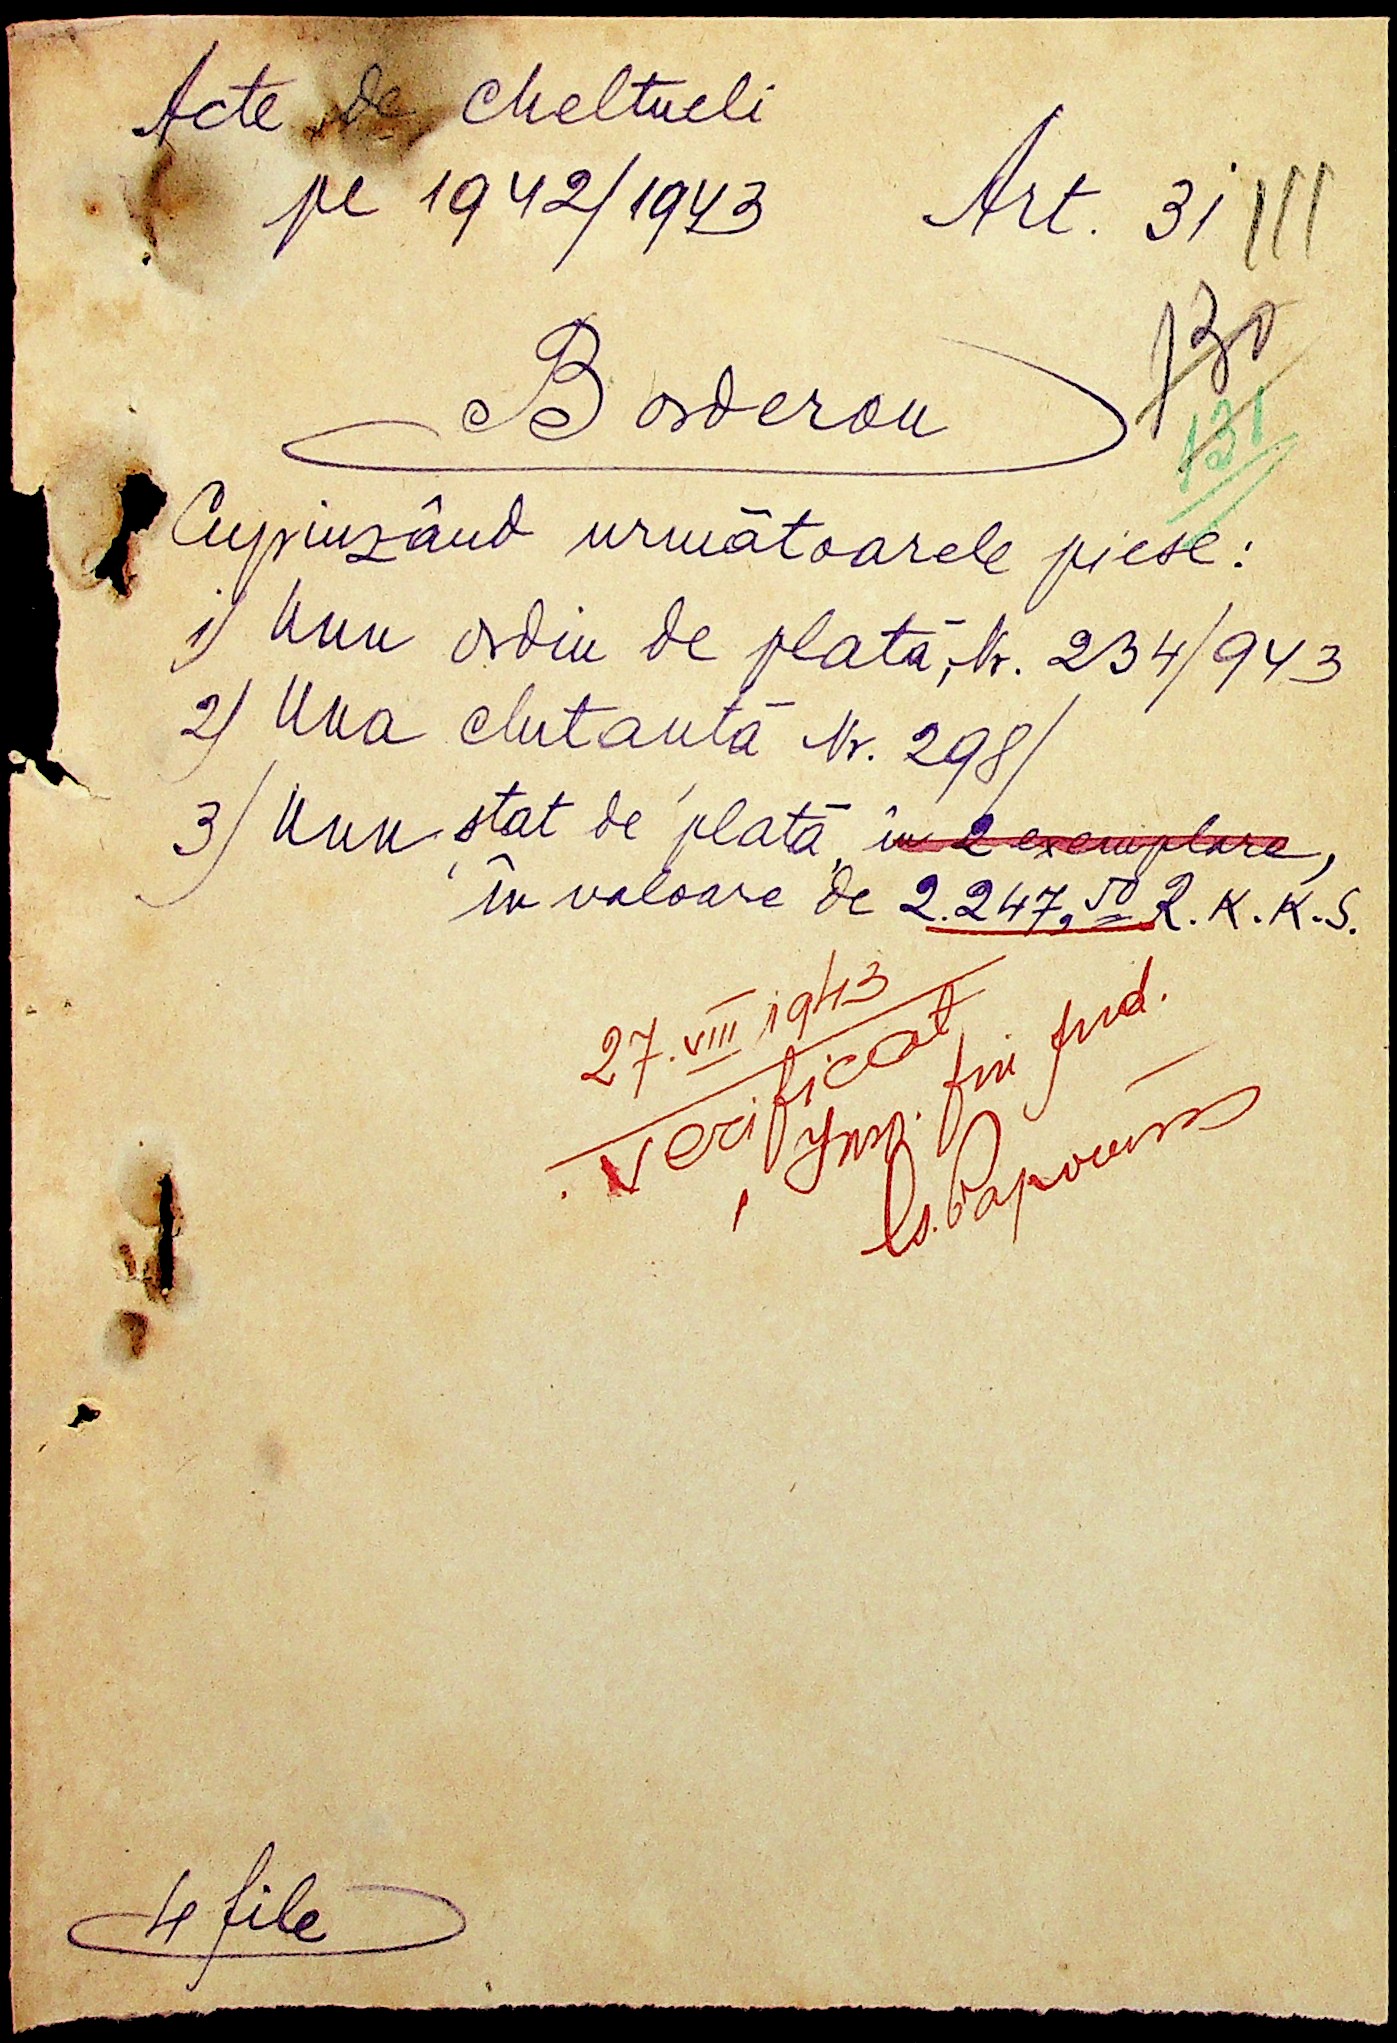 Acte de cheltueli
pe 1942/1943 Art. 31 III
130
131
Borderou
Cuprinzând următoarele piese:
1) Unu ordin de plată, Nr. 234/943
2) Una chitantă Nr. 298/
3) Unu stat de plată, în 2 exemplare,
în valoare de 2.247,50 R.K.K.S.
27.VIII 1943
Verificat
Insp. fin jud.
4 file